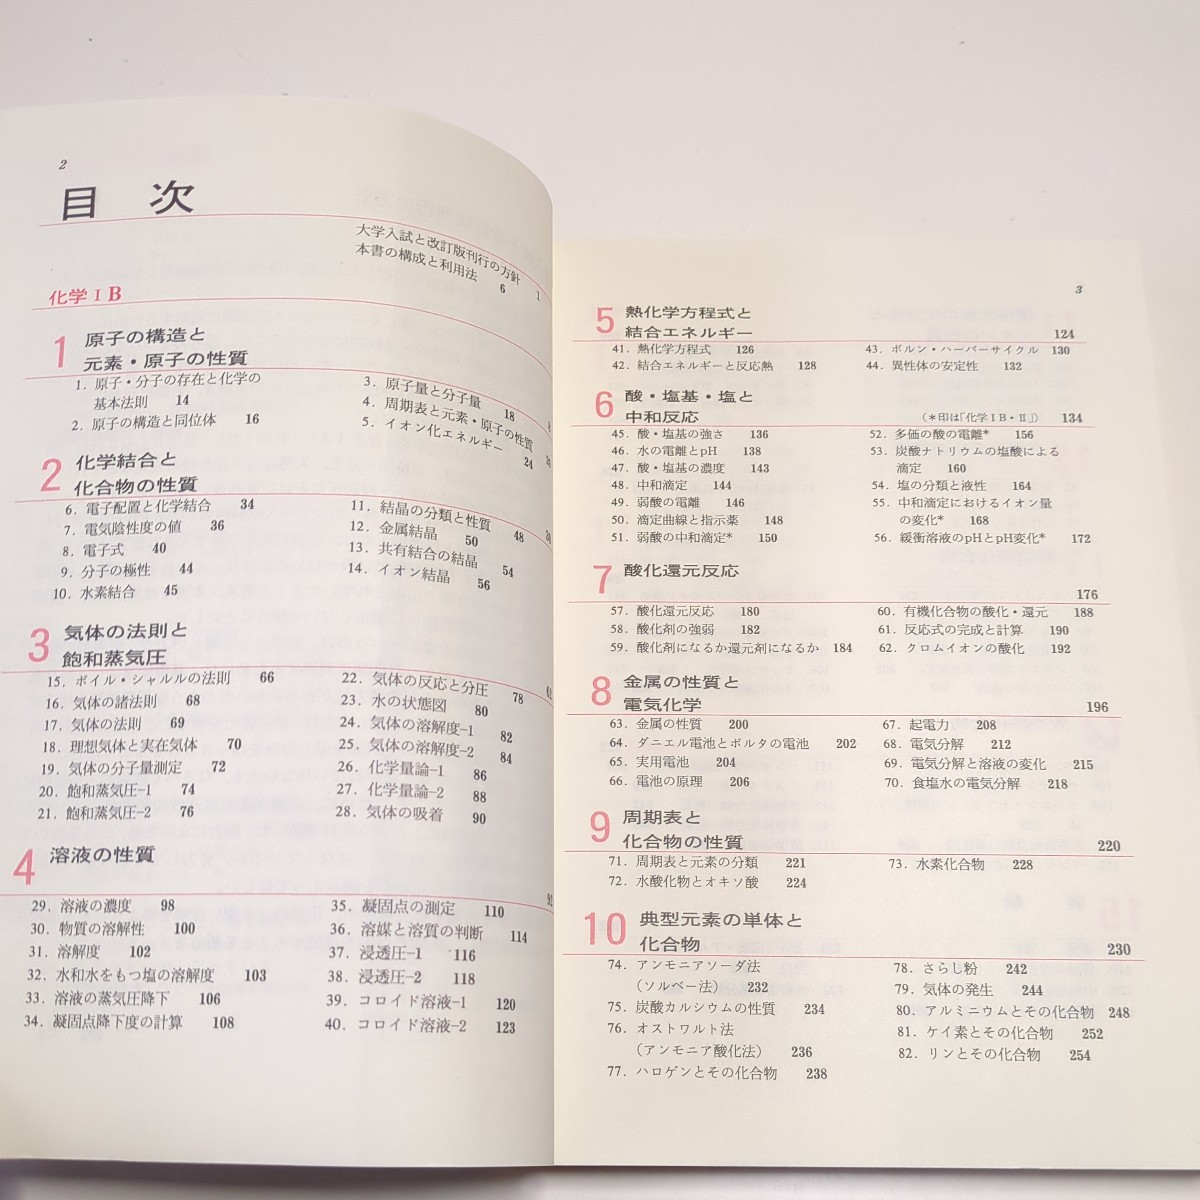 2
目 次
大学入試と改訂版刊行の方針 1
本書の構成と利用法 6
化学ⅠB
1 原子の構造と
元素・原子の性質 8
1. 原子・分子の存在と化学の
基本法則 14
2. 原子の構造と同位体 16
3. 原子量と分子量 18
4. 周期表と元素・原子の性質 20
5. イオン化エネルギー 24
2 化学結合と
化合物の性質 30
6. 電子配置と化学結合 34
7. 電気陰性度の値 36
8. 電子式 40
9. 分子の極性 44
10. 水素結合 45
11. 結晶の分類と性質 48
12. 金属結晶 50
13. 共有結合の結晶 54
14. イオン結晶 56
3 気体の法則と
飽和蒸気圧
15. ボイル・シャルルの法則 66
16. 気体の諸法則 68
17. 気体の法則 69
18. 理想気体と実在気体 70
19. 気体の分子量測定 72
20. 飽和蒸気圧-1 74
21. 飽和蒸気圧-2 76
22. 気体の反応と分圧 78
23. 水の状態図 80
24. 気体の溶解度-1 82
25. 気体の溶解度-2 84
26. 化学量論-1 86
27. 化学量論-2 88
28. 気体の吸着 90
4 溶液の性質
29. 溶液の濃度 98
30. 物質の溶解性 100
31. 溶解度 102
32. 水和水をもつ塩の溶解度 103
33. 溶液の蒸気圧降下 106
34. 凝固点降下度の計算 108
35. 凝固点の測定 110
36. 溶媒と溶質の判断 114
37. 浸透圧-1 116
38. 浸透圧-2 118
39. コロイド溶液-1 120
40. コロイド溶液-2 123
3
5 熱化学方程式と
結合エネルギー 124
41. 熱化学方程式 126
42. 結合エネルギーと反応熱 128
43. ボルン・ハーバーサイクル 130
44. 異性体の安定性 132
6 酸・塩基・塩と
中和反応 (*印は「化学ⅠB・Ⅱ」) 134
45. 酸・塩基の強さ 136
46. 水の電離とpH 138
47. 酸・塩基の濃度 143
48. 中和滴定 144
49. 弱酸の電離 146
50. 滴定曲線と指示薬 148
51. 弱酸の中和滴定* 150
52. 多価の酸の電離* 156
53. 炭酸ナトリウムの塩酸による
滴定 160
54. 塩の分類と液性 164
55. 中和滴定におけるイオン量
の変化* 168
56. 緩衝溶液のpHとpH変化* 172
7 酸化還元反応 176
57. 酸化還元反応 180
58. 酸化剤の強弱 182
59. 酸化剤になるか還元剤になるか 184
60. 有機化合物の酸化・還元 188
61. 反応式の完成と計算 190
62. クロムイオンの酸化 192
8 金属の性質と
電気化学 196
63. 金属の性質 200
64. ダニエル電池とボルタの電池 202
65. 実用電池 204
66. 電池の原理 206
67. 起電力 208
68. 電気分解 212
69. 電気分解と溶液の変化 215
70. 食塩水の電気分解 218
9 周期表と
化合物の性質 220
71. 周期表と元素の分類 221
72. 水酸化物とオキソ酸 224
73. 水素化合物 228
10 典型元素の単体と
化合物 230
74. アンモニアソーダ法
(ソルベー法) 232
75. 炭酸カルシウムの性質 234
76. オストワルト法
(アンモニア酸化法) 236
77. ハロゲンとその化合物 238
78. さらし粉 242
79. 気体の発生 244
80. アルミニウムとその化合物 248
81. ケイ素とその化合物 252
82. リンとその化合物 254